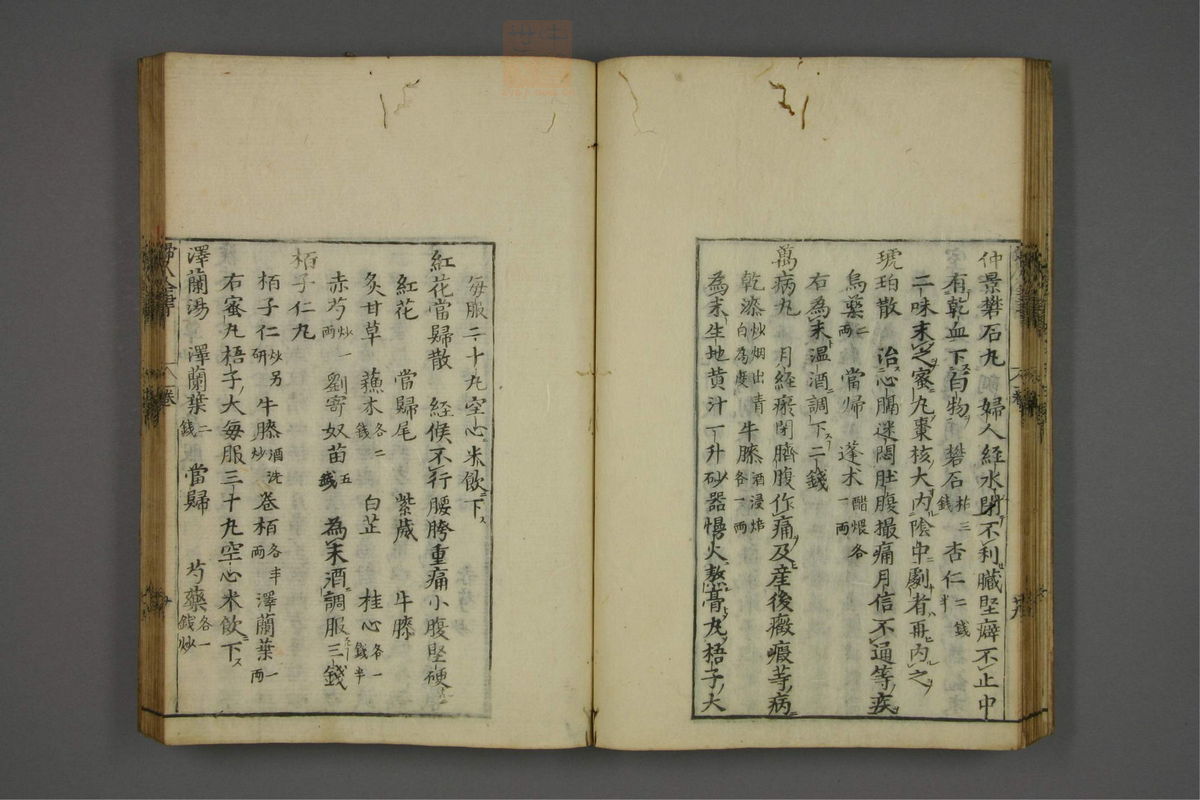 仲景礬石丸 婦人經水閉不利臟堅癖不止中
有乾血下白物 礬石枯三錢 杏仁二錢半
二味末之蜜丸棗核大內陰中劇者再內之
琥珀散 治心膈迷悶肚腹撮痛月信不通等疾
烏藥二兩 當歸 蓬朮醋煨各一兩
右為末温酒調下二錢
萬病丸 月經瘀閉臍腹作痛及産後癥瘕等病
乾漆炒烟出青白為度 牛膝酒浸焙各一兩
為末生地黄汁一升砂器慢火熬膏丸梧子大
每服二十丸空心米飲下
紅花當歸散 經候不行腰胯重痛小腹堅硬
紅花 當歸尾 紫葳 牛膝
炙甘草 蘓木各二錢 白芷 桂心各一錢半
赤芍炒一兩 劉寄奴苗五錢 為末酒調服三錢
栢子仁丸
栢子仁炒另研 牛膝酒洗炒 卷栢各半兩 澤蘭葉一兩
右蜜丸梧子大每服三十丸空心米飲下
澤蘭湯 澤蘭葉二錢 當歸 芍藥各一錢炒